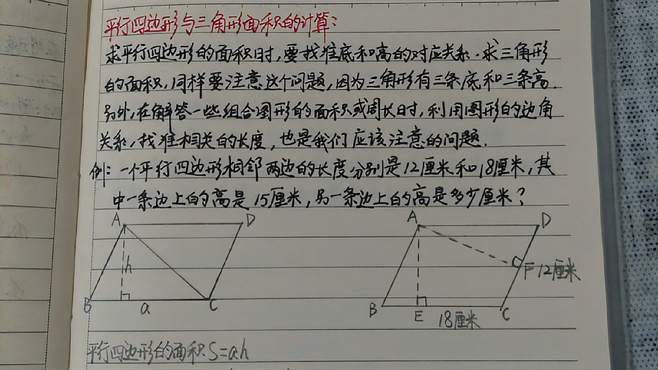 平行四边形与三角形面积的计算:
求平行四边形的面积时,要找准底和高的对应关系.求三角形
的面积,同样要注意这个问题,因为三角形有三条底和三条高.
另外,在解答一些组合图形的面积或周长时,利用图形的边角
关系,找准相关的长度,也是我们应该注意的问题.
例:一个平行四边形相邻两边的长度分别是12厘米和18厘米,其
中一条边上的高是15厘米,另一条边上的高是多少厘米?
A D A D
h F 12厘米
B a C B E 18厘米 C
平行四边形的面积S=ah